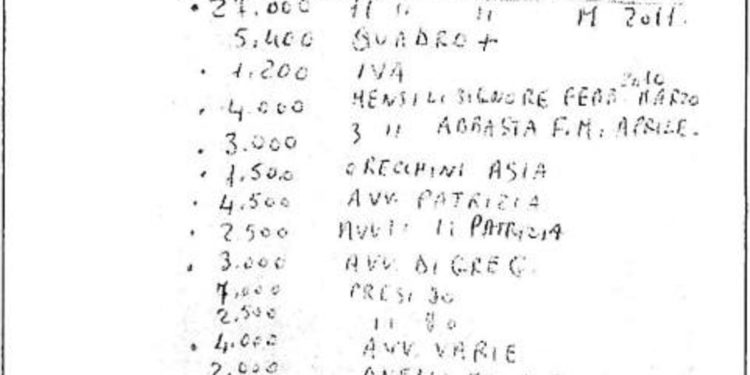 • 27.000 11 11 11 M 2011.
5.400 QUADRO +
• 1.200 IVA
• 4.000 MENSILI SIGNORE FEBB. 2010 MARZO
• 3.000 3 11 ABBASTA F.M. APRILE.
• 1.500 ORECCHINI ASIA
• 4.500 AVV. PATRIZIA
• 2.500 AVV. 11 PATRIZIA
• 3.000 AVV. DI GREG.
7.000 PRESI
2.500 11
• 4.000 AVV. VARIE
2.000